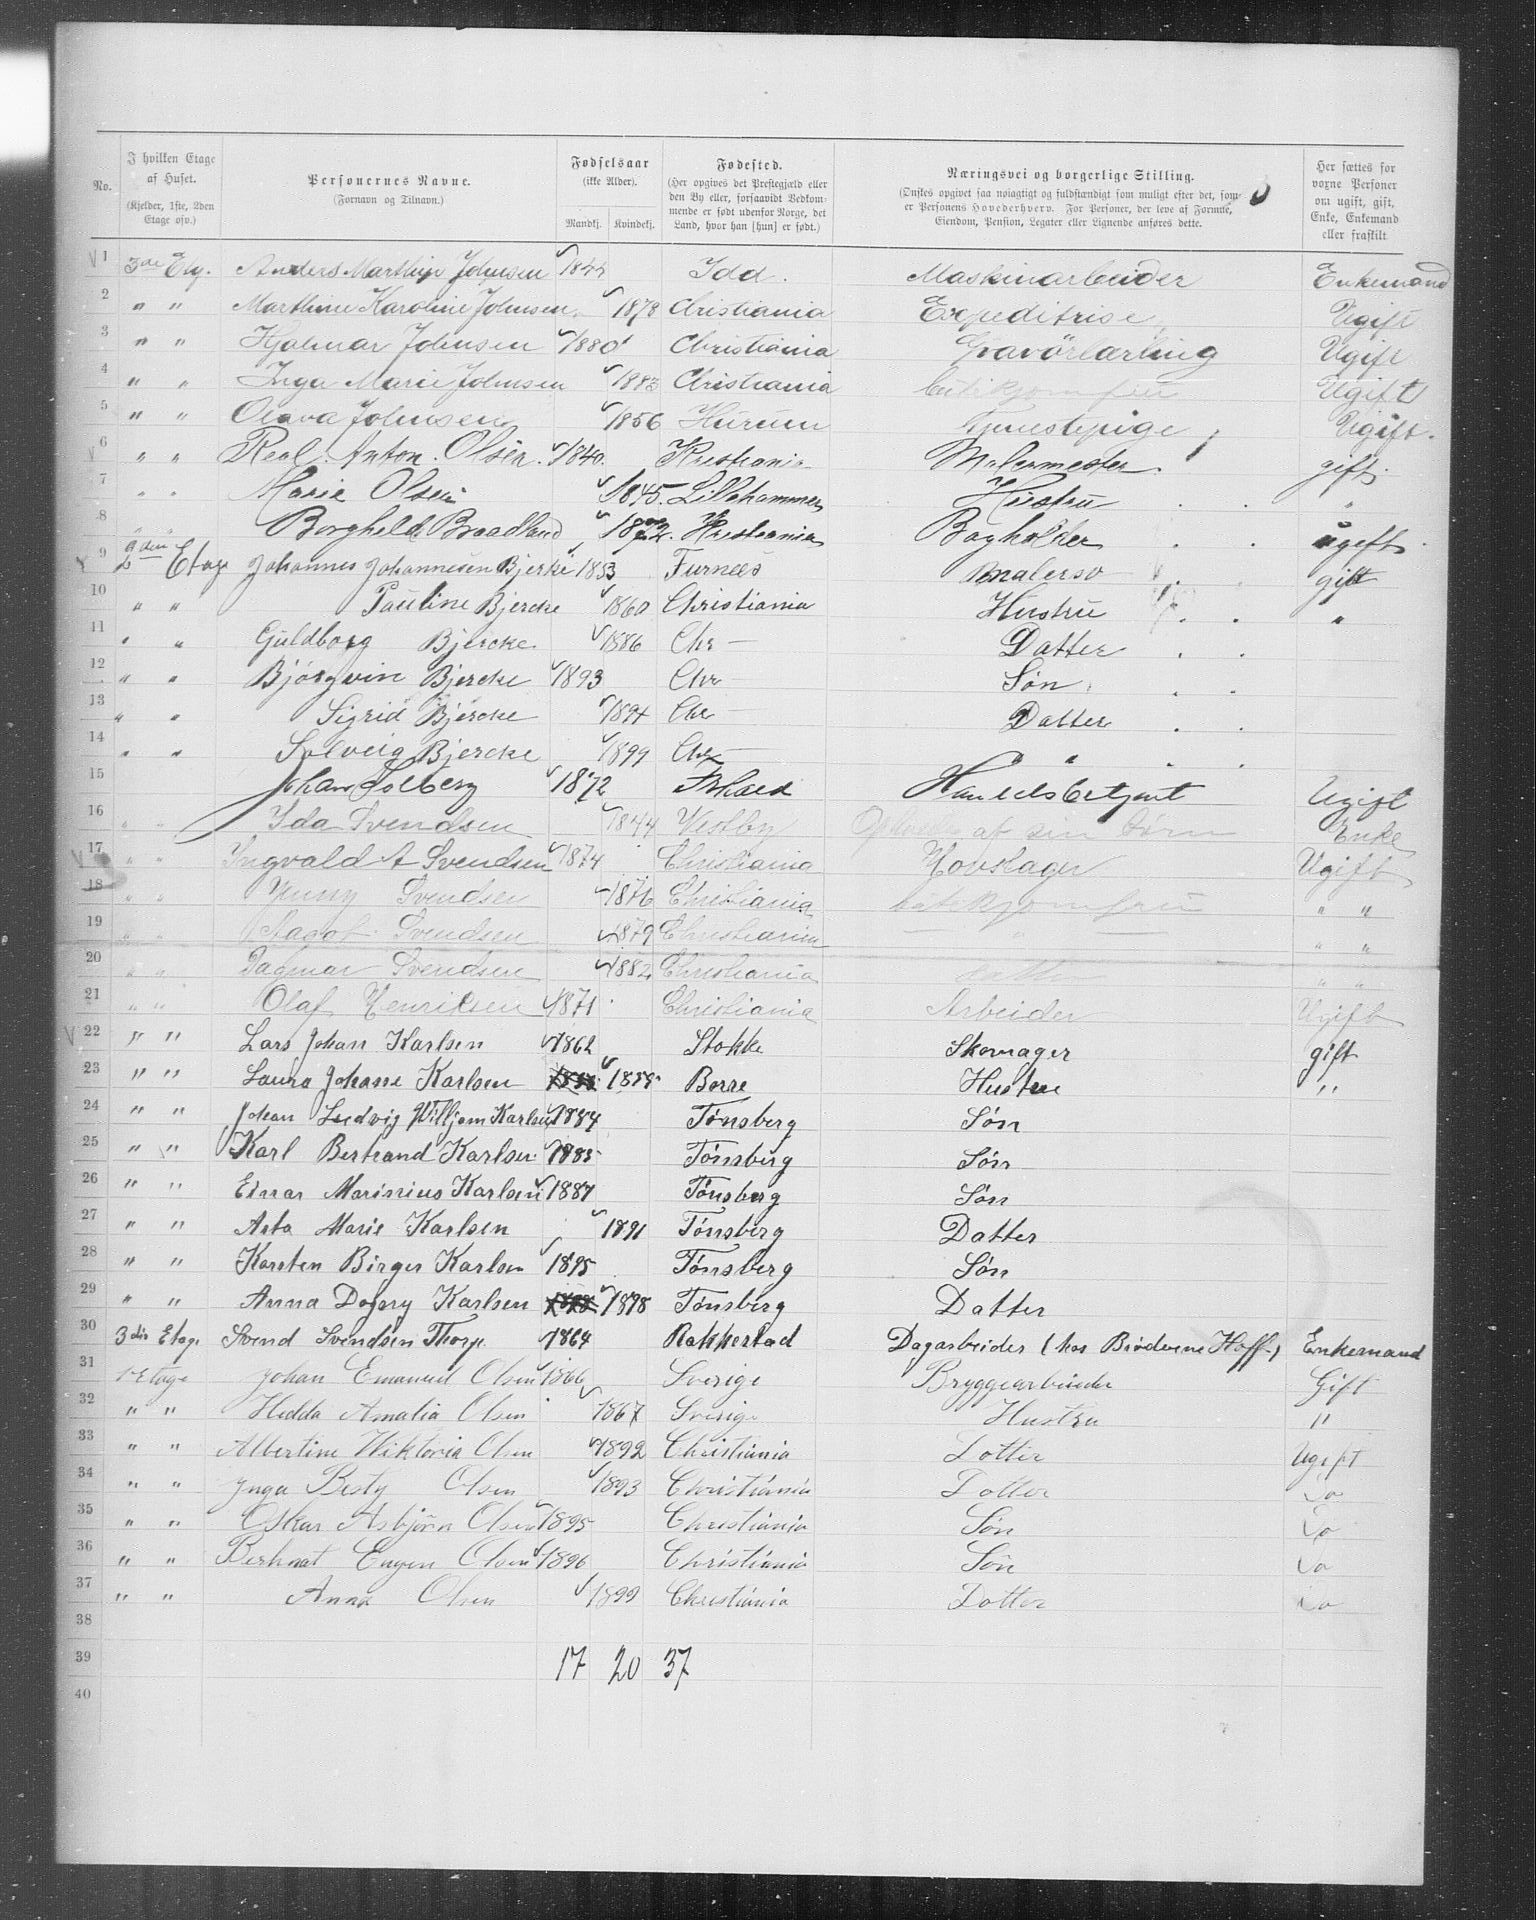 No. | I hvilken Etage af Huset. (Kjelder, 1ste, 2den Etage osv.) | Personernes Navne. (Fornavn og Tilnavn.) | Fødselsaar (ikke Alder). Mandkj. Kvindekj. | Fødested. (Her opgives det Prestegjæld eller den By eller, forsaavidt Vedkommende er født udenfor Norge, det Land, hvor han [hun] er født.) | Næringsvei og borgerlige Stilling. (Ønskes opgivet saa nøiagtigt og fuldstændigt som muligt efter det, som er Personens Hovederhverv. For Personer, der leve af Formue, Eiendom, Pension, Legater eller Lignende anføres dette. | Her sættes for voxne Personer om ugift, gift, Enke, Enkemand eller fraskilt
1 3die Etg. Anders Marthin Johnsen Idd. Maskinarbeider Enkemand
2 " " Marthine Karoline Johnsen 1878 Christiania Expeditrise Ugift
3 " " Hjalmar Johnsen 1880 Christiania Gravörlærling Ugift
4 " " Inga Marie Johnsen 1883 Christiania butikjomfru Ugift
5 " " Olava Johnsen 1856 Hurum Tjenestepige Ugift.
6 " " Anton Olsen 1840. Kristiania Malermester. gift.
7 " " Marie Olsen 1845. Lillehammer Hustru "
8 " " Borghild Braadland Kristiania Bogholder ugift
9 2den Etage Johannes Johannesen Bjerke 1853 Furnes Malersv gift
10 " " Pauline Bjercke 1860 Christiania Hustru "
11 " " Guldborg Bjercke 1886 Chr — Datter
12 " " Bjørgvin Bjercke 1893 Chr — Søn
13 " " Sigrid Bjercke Chr — Datter
14 " " Solveig Bjercke 1899 Chr — " "
15 Johan Solberg 1872 Handelsbetjent Ugift
16 " " Ida Svendsen 1844 Vestby af sin børn Enke
17 " " Ingvald A Svendsen 1874 Christiania Hovslager Ugift
18 " " Svendsen 1876 Christiania butikjomfru " "
19 " " Aagot Svendsen 1879 Christiania — " — " "
20 " " Dagmar Svendsen 1882 Christiania " "
21 " " Olaf Henriksen 1871 Christiania Arbeider Ugift
22 " " Lars Johan Karlsen 1862 Stokke Skomager gift
23 " " Laura Johanne Karlsen Borre Hustru "
24 " " Johan Ludvig Willjam Karlsen 1884 Tønsberg Søn
25 " " Karl Bertrand Karlsen 1885 Tønsberg Søn
26 " " Einar Marinius Karlsen 1887 Tønsberg Søn
27 " " Asta Marie Karlsen 1891 Tønsberg Datter
28 " " Karsten Birger Karlsen 1895 Tønsberg Søn
29 " " Anna Dagny Karlsen 1898 Tønsberg Datter
30 3die Etage Svend Svendsen Thorp 1864 Rakkestad Dagarbeider (hos Brødrene Hoff) Enkemand
31 1 Etage Johan Emanuel Olsen 1866 Sverige Bryggearbeider Gift
32 " " Hedda Amalia Olsen 1867 Sverige Hustru "
33 " " Albertine Wiktoria Olsen 1892 Christiania Dotter Ugift
34 " " Inga Besty Olsen 1893 Christiania Dotter Do
35 " " Oskar Asbjørn Olsen 1895 Christiania Søn Do
36 " " Berhnat Eugen Olsen 1896 Christiania Søn Do
37 " " Anna Olsen 1899 Christiania Dotter Do
38
39 17 20 37
40